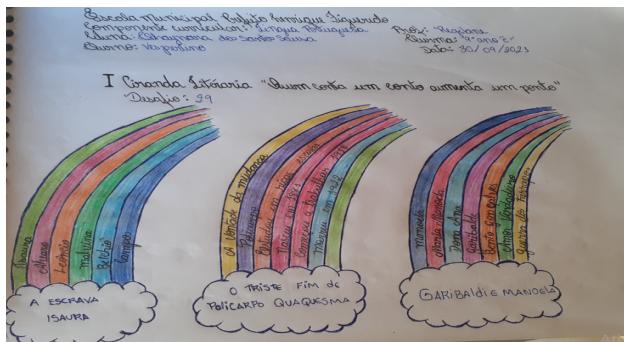 Escola Municipal Prefeito Henrique Figueredo
Componente curricular: Língua Portuguesa Prof.: Regiane
Aluna: dos Santos Sousa Turma: 9º ano "E"
Turno: Vespertino Data: 30/09/2021
I Ciranda Literária "Quem conta um conto aumenta um ponto"
Desafio: 29
Isaura
Álvaro
Leôncio
Malvina
Belchio
Campos
A ESCRAVA
ISAURA
A vontade de mudança
Patriotismo
Publicado em
Nasceu em 1881
Começou a trabalhar
Morreu em 1922
O TRISTE FIM DE
POLICARPO QUAQUESMA
Manoela
Maria Manoela
Dona Ana
Garibaldi
Bento Gonçalves
Amor Verdadeiro
Guerra dos Farrapos
GARIBALDI E MANOELA